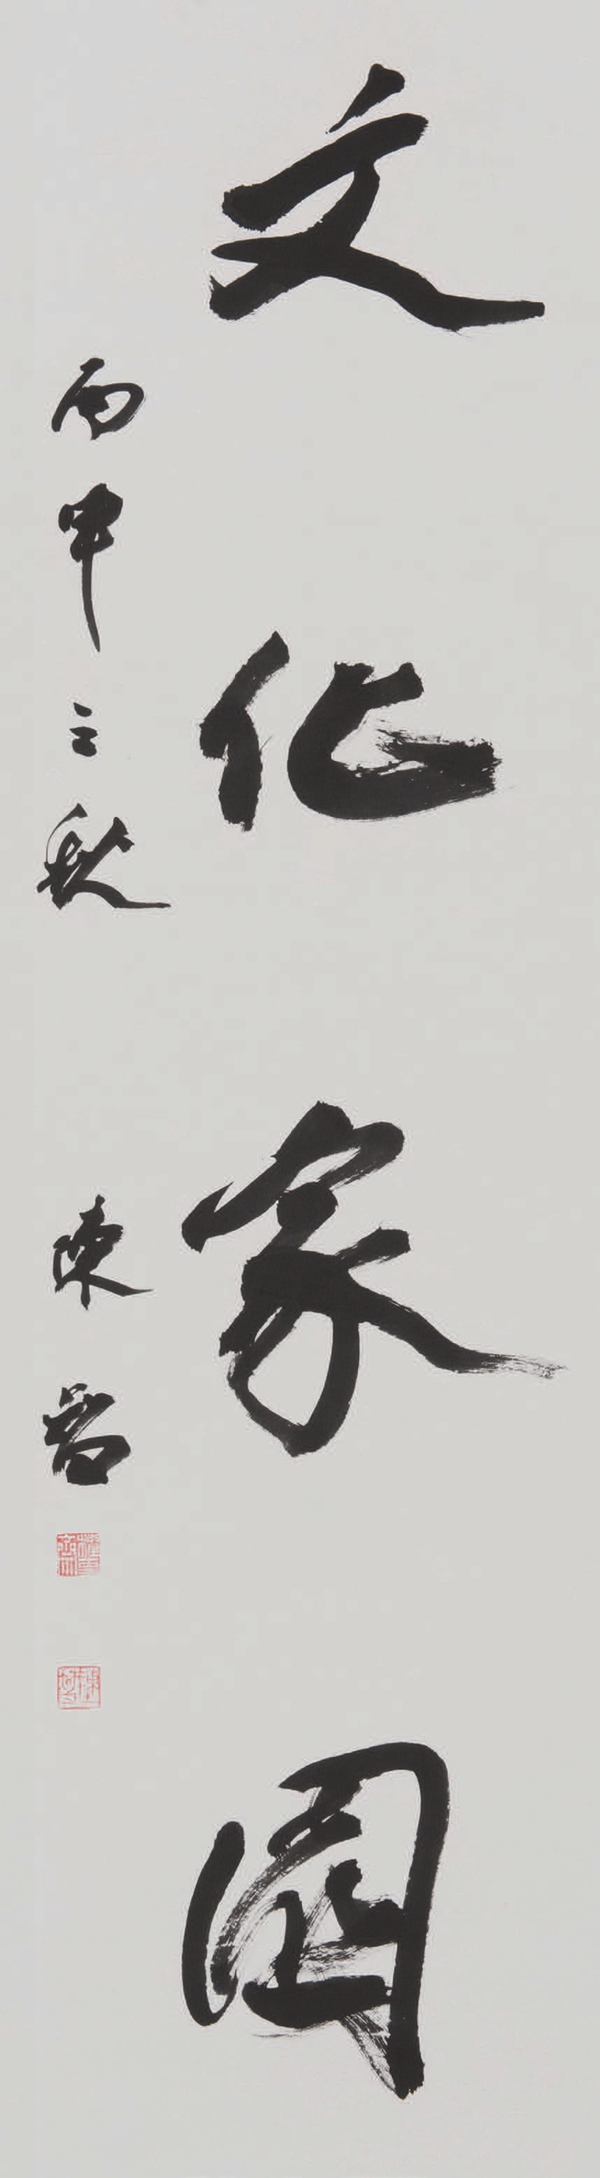 文化家園
丙申之秋 陳